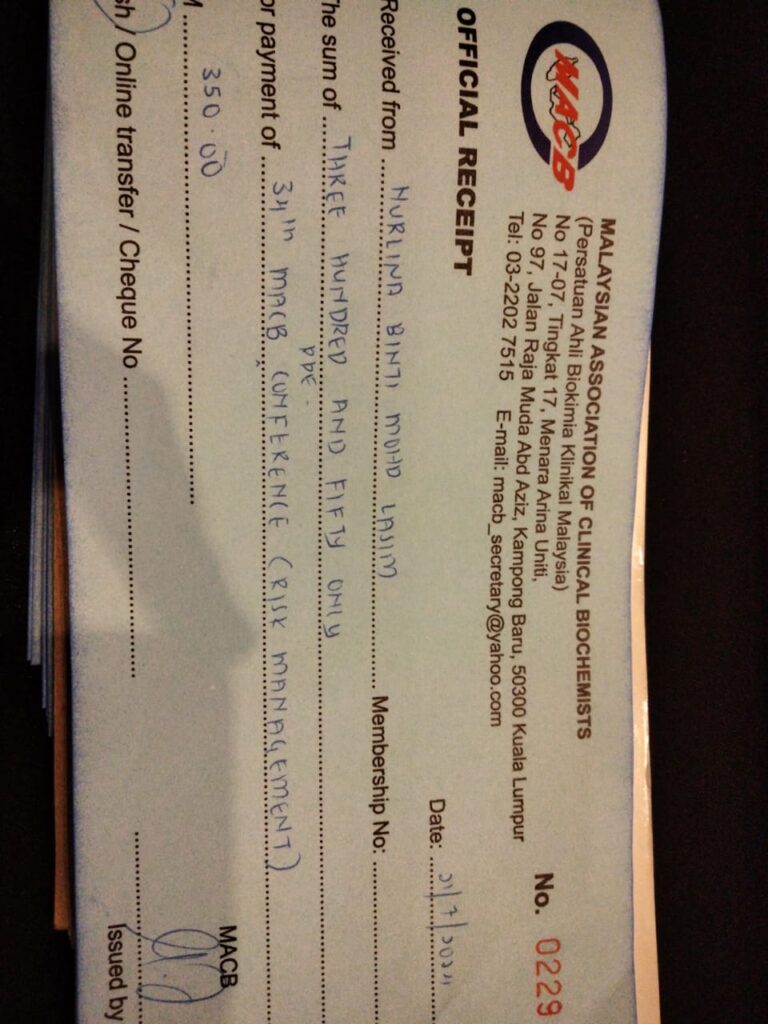 MACB
MALAYSIAN ASSOCIATION OF CLINICAL BIOCHEMISTS
(Persatuan Ahli Biokimia Klinikal Malaysia)
No 17-07, Tingkat 17, Menara Arina Uniti,
No 97, Jalan Raja Muda Abd Aziz, Kampong Baru, 50300 Kuala Lumpur
Tel: 03-2202 7515 E-mail: macb_secretary@yahoo.com
No. 0229
OFFICIAL RECEIPT
Date:
Received from NURLINA BINTI MOHD LASIM Membership No:
he sum of THREE HUNDRED AND FIFTY ONLY
PRE-
or payment of 34th MACB CONFERENCE (RISK MANAGEMENT)
350.00
MACB
sh / Online transfer / Cheque No
Issued by